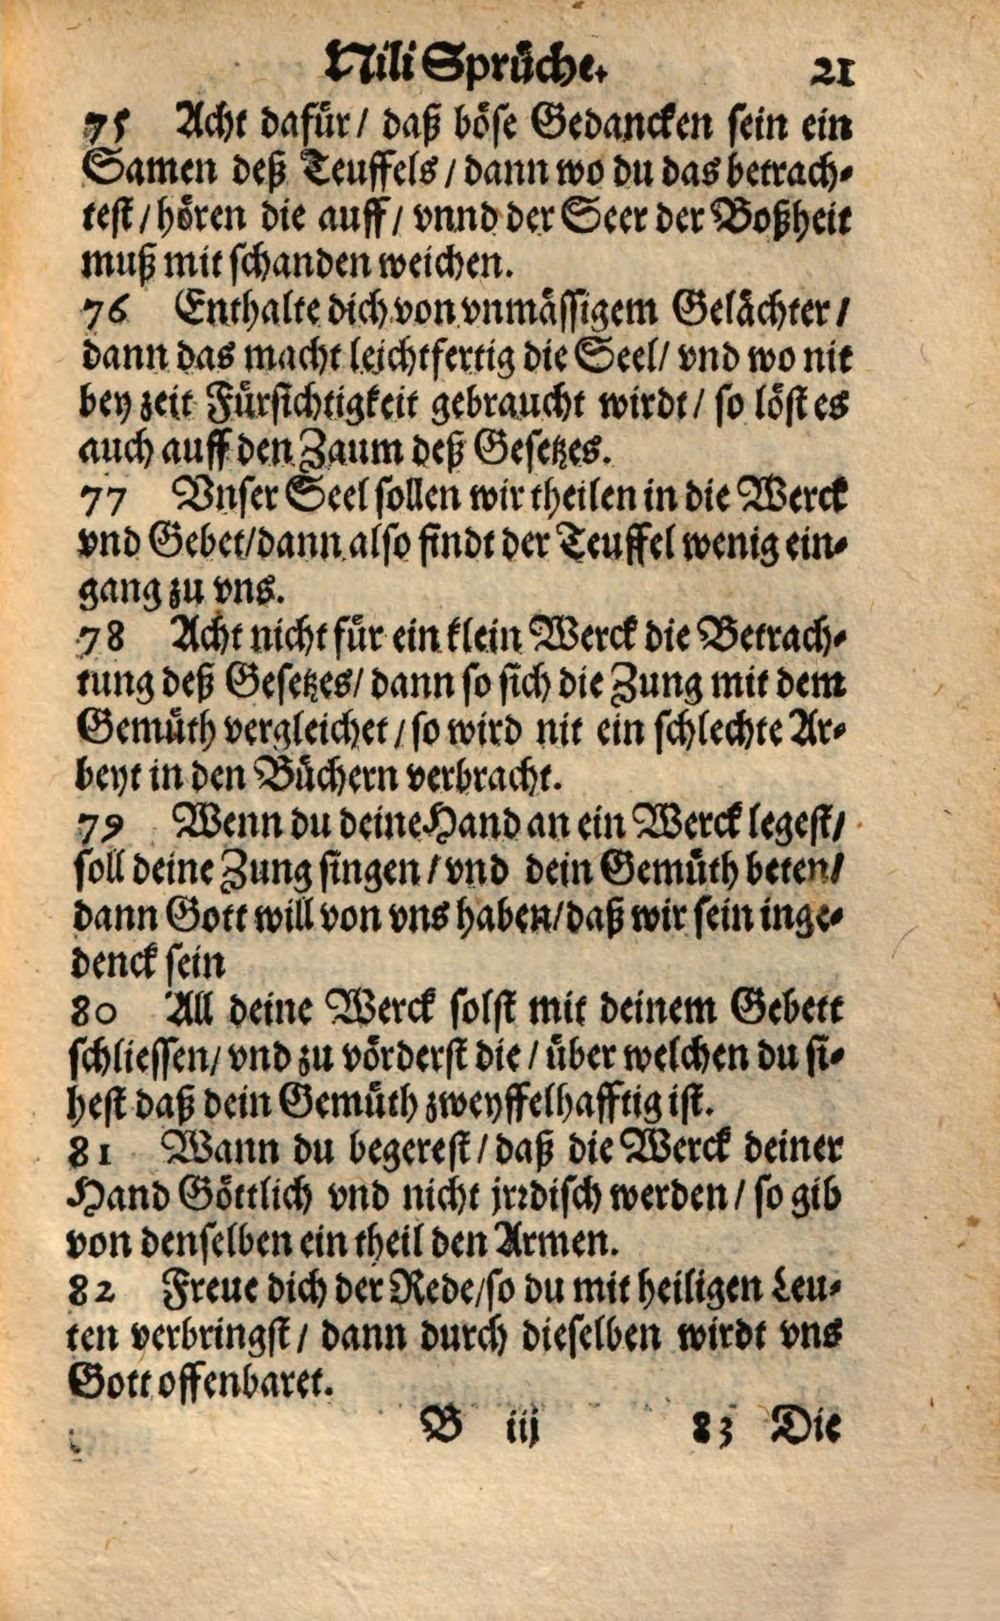 Nili Sprüche. 21
75 Acht dafür / daß böse Gedancken sein ein
Samen deß Teuffels / dann wo du das betrach-
test / hören die auff / vnnd der Seer der Boßheit
muß mit schanden weichen.
76 Enthalte dich von vnmässigem Gelächter /
dann das macht leichtfertig die Seel / vnd wo nit
bey zeit Fürsichtigkeit gebraucht wirdt / so löst es
auch auff den Zaum deß Gesetzes.
77 Vnser Seel sollen wir theilen in die Werck
vnd Gebet / dann also findt der Teuffel wenig ein-
gang zu vns.
78 Acht nicht für ein klein Werck die Betrach-
tung deß Gesetzes / dann so sich die Zung mit dem
Gemüth vergleichet / so wird nit ein schlechte Ar-
beyt in den Büchern verbracht.
79 Wenn du deine Hand an ein Werck legest /
soll deine Zung singen / vnd dein Gemüth beten /
dann Gott will von vns haben / daß wir sein inge-
denck sein
80 All deine Werck solst mit deinem Gebett
schliessen / vnd zu vörderst die / über welchen du si-
hest daß dein Gemüth zweyffelhafftig ist.
81 Wann du begerest / daß die Werck deiner
Hand Göttlich vnd nicht jrꝛdisch werden / so gib
von denselben ein theil den Armen.
82 Freue dich der Rede / so du mit heiligen Leu-
ten verbringst / dann durch dieselben wirdt vns
Gott offenbaret.
B iij 83 Die